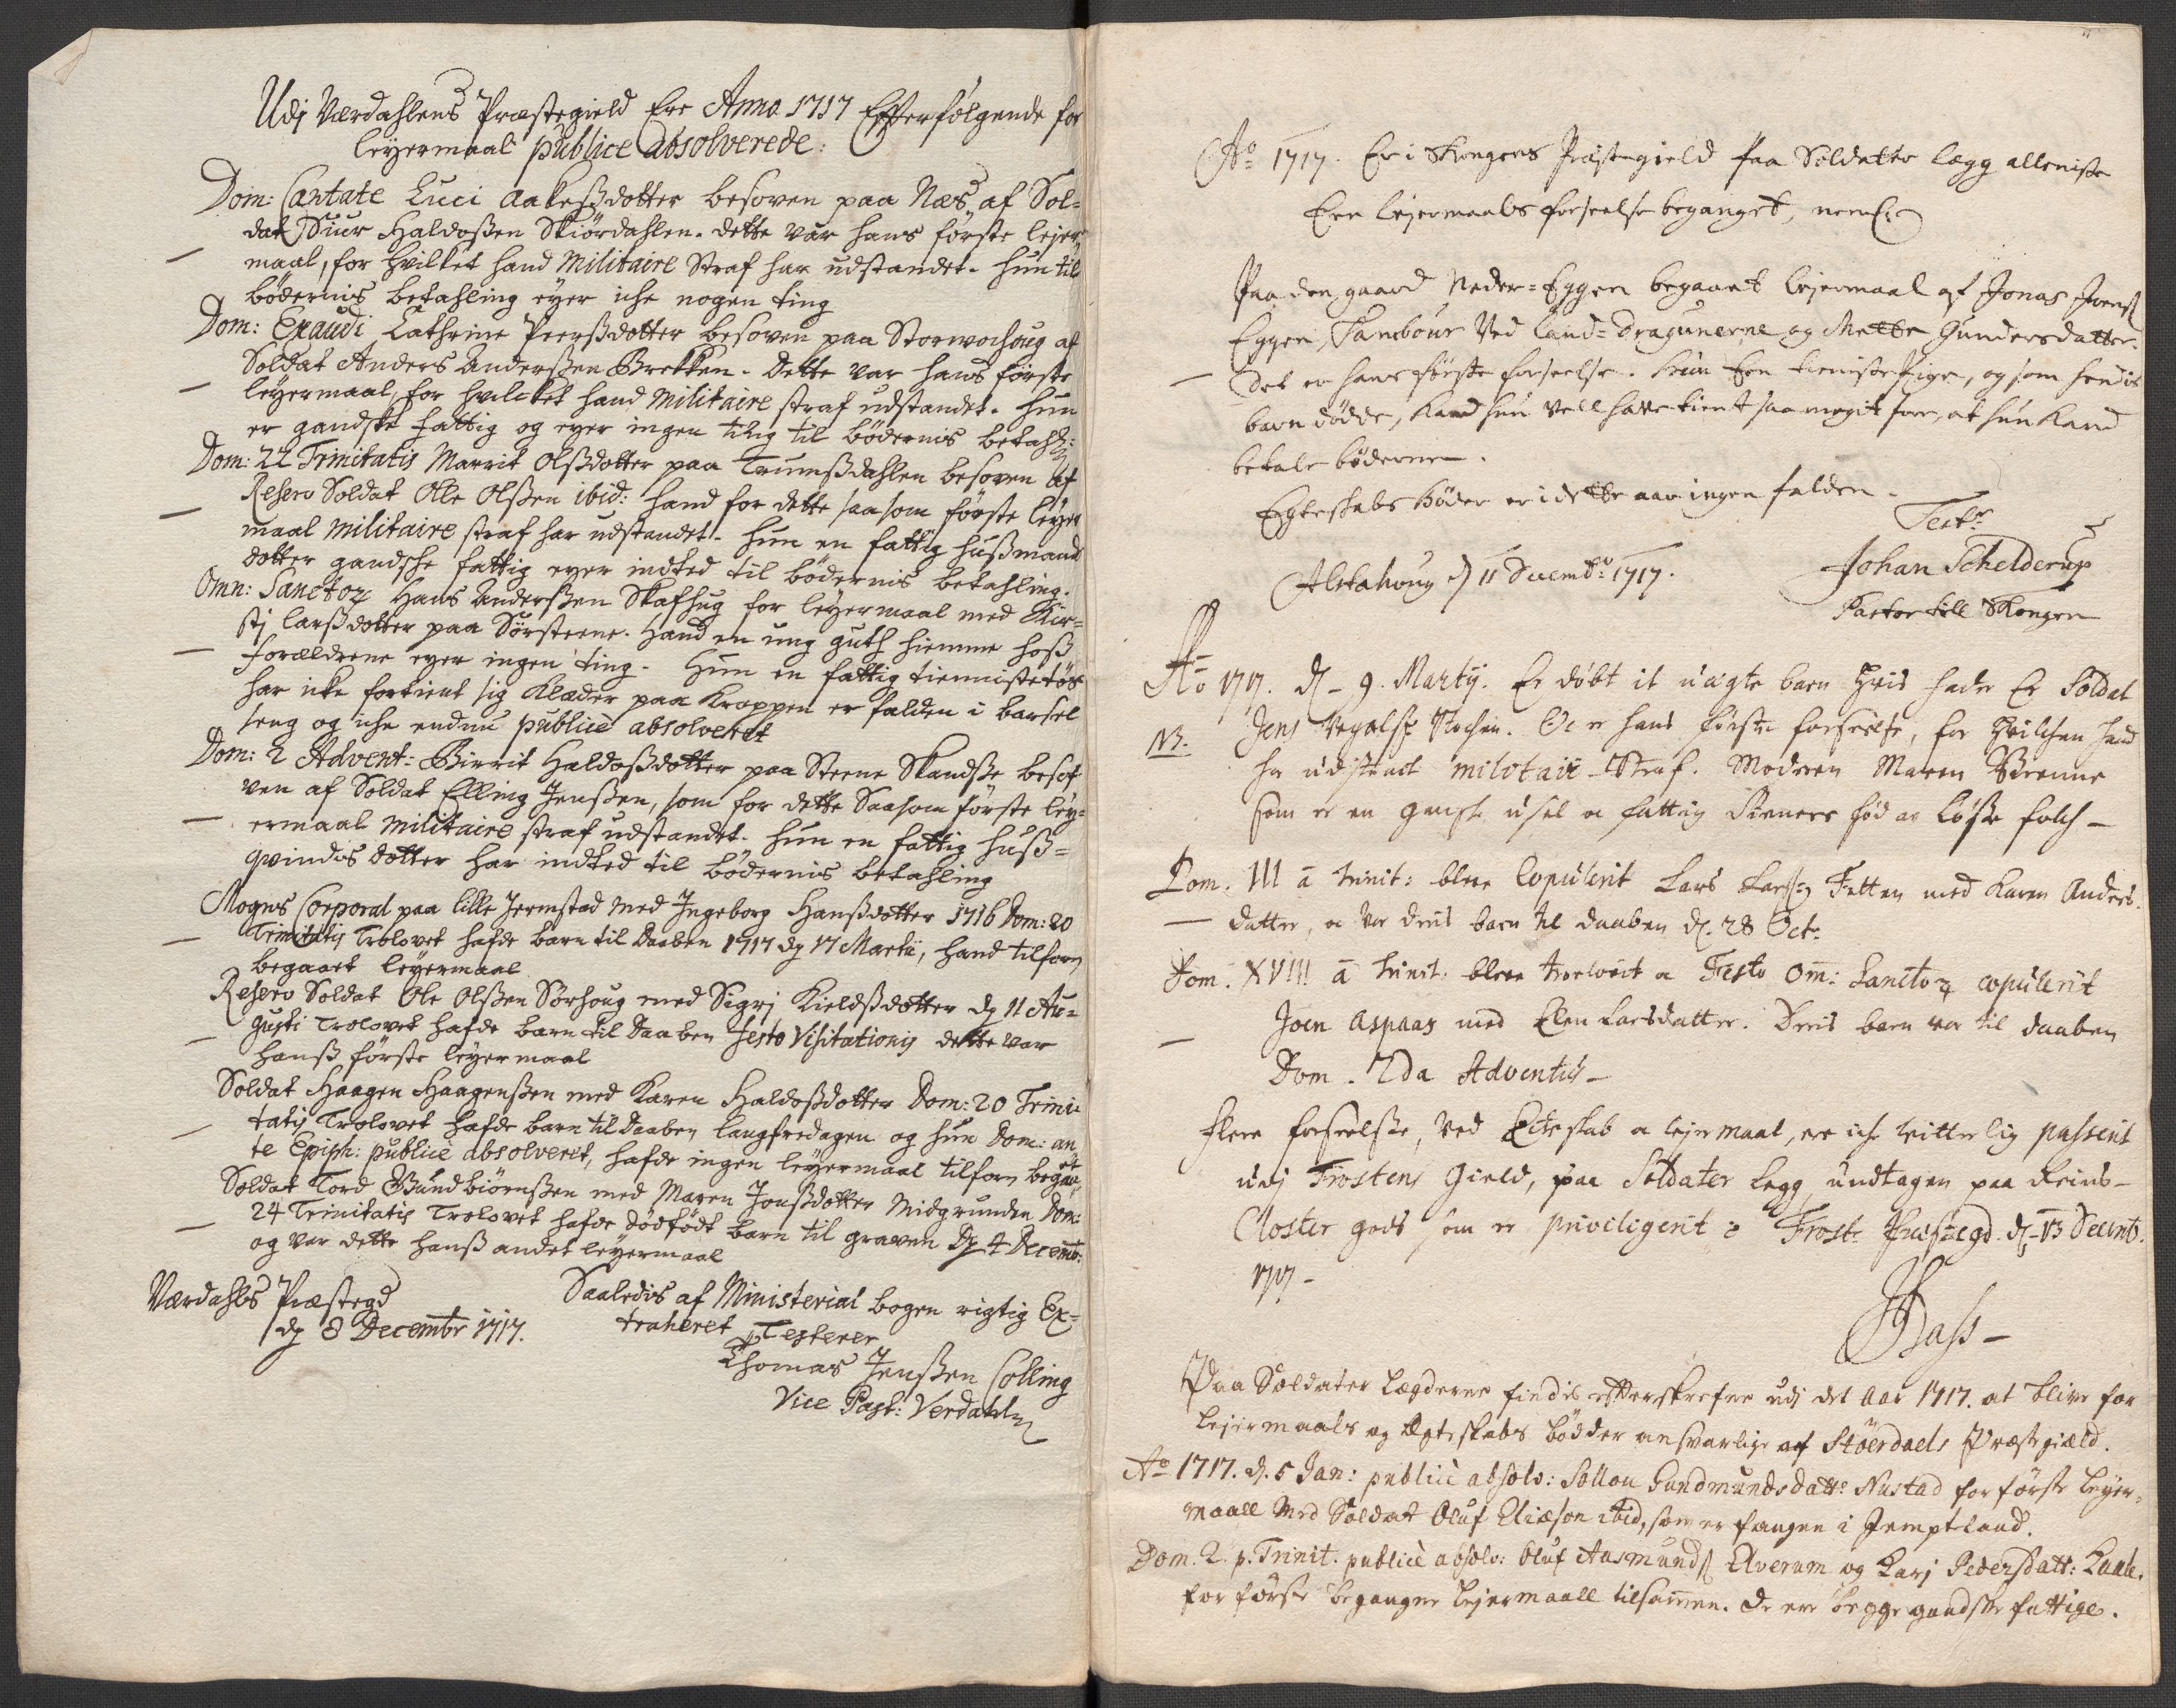 Udj Værdahlens Præstegield Ere Anno 1717 Efterfølgende for
leyermaal publice absolverede:
Dom: Cantate Luci Aakeßdotter besoven paa Næs af Sol=
dat Siur Haldoßen Skiördahlen. dette var hans förste lejer=
maal, for hvilket hand Militaire Straf har udstandet. hun til
bödernis betahling eyer iche nogen ting
Dom: Exaudi Cathrine Peersdotter besoven paa Storwochoug af
Soldat Anders Anderßen Brekken. Dette var hans förste
leyermaal, for hvilcket hand Militaire straf udstandet. hun
er gandske fattig og eyer ingen ting til bödernis betahl:
Dom: 22 Trinitatis Marrit Olßdotter paa Trumßdahlen besoven af
Reserv Soldat Olle Olßen ibid: hand for dette saasom förste leyer
maal militaire straf har udstandet. hun en fattig hußmands
dotter gandsche fattig eyer indted til bödernis betahling.
Omn: Sanctor Hans Anderßen Skafhug for leyermaal med Kir=
stj larßdotter paa Sörsteene. Hand en ung guth hiemme hoß
forældrene eyer ingen ting. Hun en fattig tiennistetös
har icke fortient sig Klæder paa Kroppen er falden i barsel
seng og iche endnu publice absolveret
Dom: 2 Advent: Birrit Haldoßdotter paa Steene Skandße besof
ven af Soldat Elling Jenßen, som for dette Saasom förste ley=
ermaal militaire straf udstandet. hun en fattig huß=
qvindes dotter har indted til bödernis betahling
Mogens Corporal paa lille Jermstad med Ingeborg Hanßdotter 1716 Dom: 20
Trinitatis Trolovet hafde barn til Daaben 1717 dg 17 Martii, hand tilforn
begaaet leyermaal
Reserv Soldat Ole Olßen Sörhoug med Sigrj Kieldßdotter dg 11 Au=
gusti Trolovet hafde barn til Daaben Festo Visitationis dette var
hanß förste leyermaal
Soldat Haagen Haagenßen med Karen Haldoßdotter Dom: 20 Trini=
tatis Trolovet hafde barn til Daaben langfredagen og hun Dom: an
te Epiph: publice absolveret, hafde ingen leyermaal tilforn begaaet
Soldat Tord Gundbiörnßen med Maren Jonßdotter Midgrunden Dom:
24 Trinitatis Trolovet hafde dödfödt barn til graven Dg 4 Decembr:
og var dette hanß andet leyermaal
Værdahls Præstegd
dg 8 Decembr 1717.
Saaledis af Ministerial bogen rigtig Ex=
traheret Testerer
Thomas Jenßen Colling
Vice Past: Verdahlen
Ao 1717. Er i Skongens Præstegield paa Soldatter Lægg alleniste
Een lejermaals forseelse beganget, neml:
Paa den gaard Neder=Eggen begaaet lejermaal af Jonas Joens
Eggen, Tambour Ved Land=Dragunerne og Mette Gundersdatter.
Det er hans förste forseelse. hun Een tienistepige, og som hendis
barn dödde, Kand hun vell have tient saa megit for, at hun Kand
betale böderne.
Egteskabs Böder er i dette aar ingen falden.
Alstahoug d 11 Decembr 1717.
Testr
Johan Schelderup
Pastor till Skongen
Ao 1717. d – 9. Martij. Er döbt it uægte barn hvis fader Er Soldat
NB. Jens Stochen. De er hans förste forseelse, for hvilchen hand
har udstaaet militair – Straf. Moderen Maren Brenne
som er en gansche usel og fattig Kieners föd af Löße folch –
Dom. III a Trinit: bleve Copulerit Lars Larsen Fætten med Karen Anders
datter, og var deris barn til daaben d. 28 Octr
Dom. XVIII a Trinit: bleve troelovit og Festo Om: Sanctor copulerit
Joen Aspaas med Elen Larsdatter. Deris barn var til daaben
Dom. 2da Adventus –
Flere forseelße, Ved Ecteskab og lejermaal, ere iche vitterlig passerit
udj Frostens Gield, paa Soldater Legg undtagen paa Reins–
Closter gods som er priviligerit Frost: Præstegd. d. 13 Decemb.
1717 –
Hass –
Paa Soldater Lægderne findis efterskrefne udj det Aar 1717. at blive for
Lejermaals og Ægteskabs bödder ansvarlige af Stöerdaels Præstegiæld.
Ao 1717. d. 5 Jan: publice absolv: Sollou Gundmundsdatt: Nustad for förste leyer=
maall med Soldat Oluf Eliæson ibid, som er fangen i Jemptland.
Dom. 2. p. Trinit. publice absolv: Oluf Aasmunds Elverum og Karj Pedersdatt:
for förste begangne Lejermaall tilsammen. de ere begge gandske fattige.